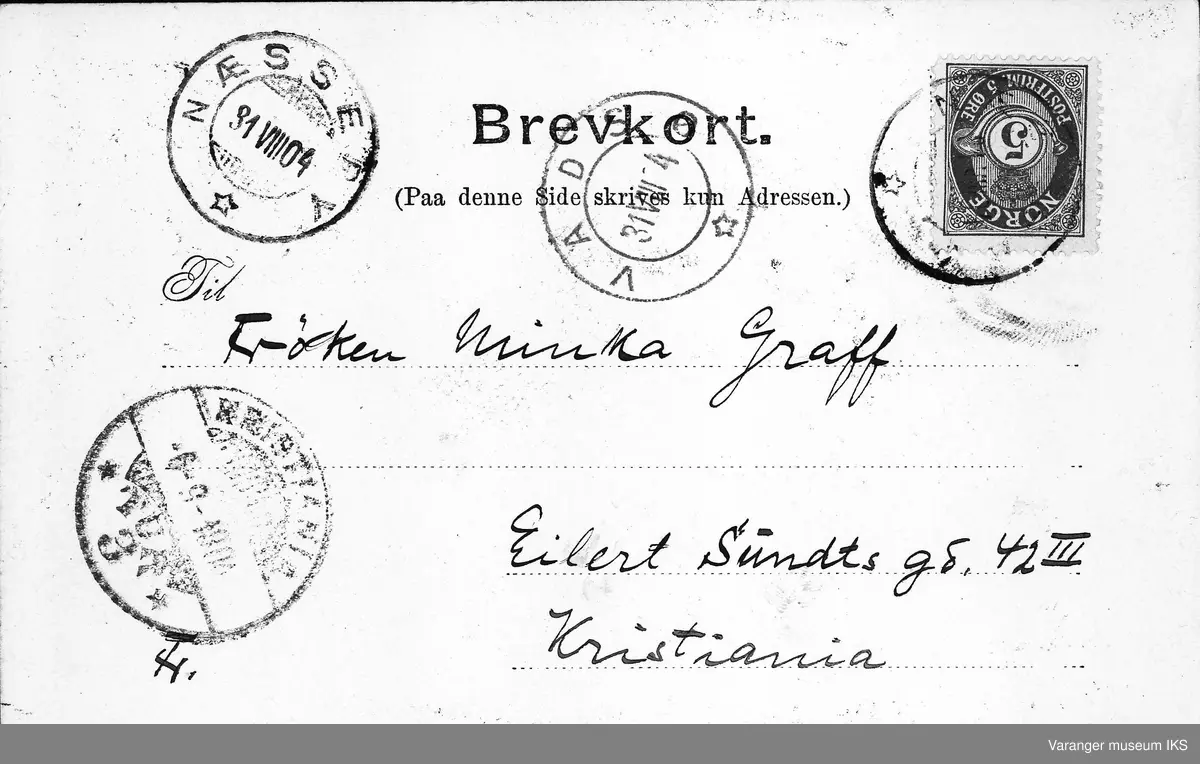 NÆSSEBY
31 VIII 04
Brevkort.
(Paa denne Side skrives kun Adressen.)
VADSØ
31 VIII 04
POSTFRIM. 5 ØRE
5
NORGE
Til
Fröken Minka Graff
KRISTIANIA
Eilert Sündts gō. 42 III
Kristiania
Varanger museum IKS